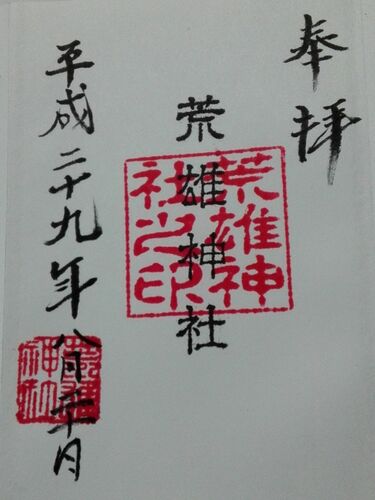 奉拝
荒雄神社
荒雄神
社之印
平成二十九年八月日
荒雄
神社